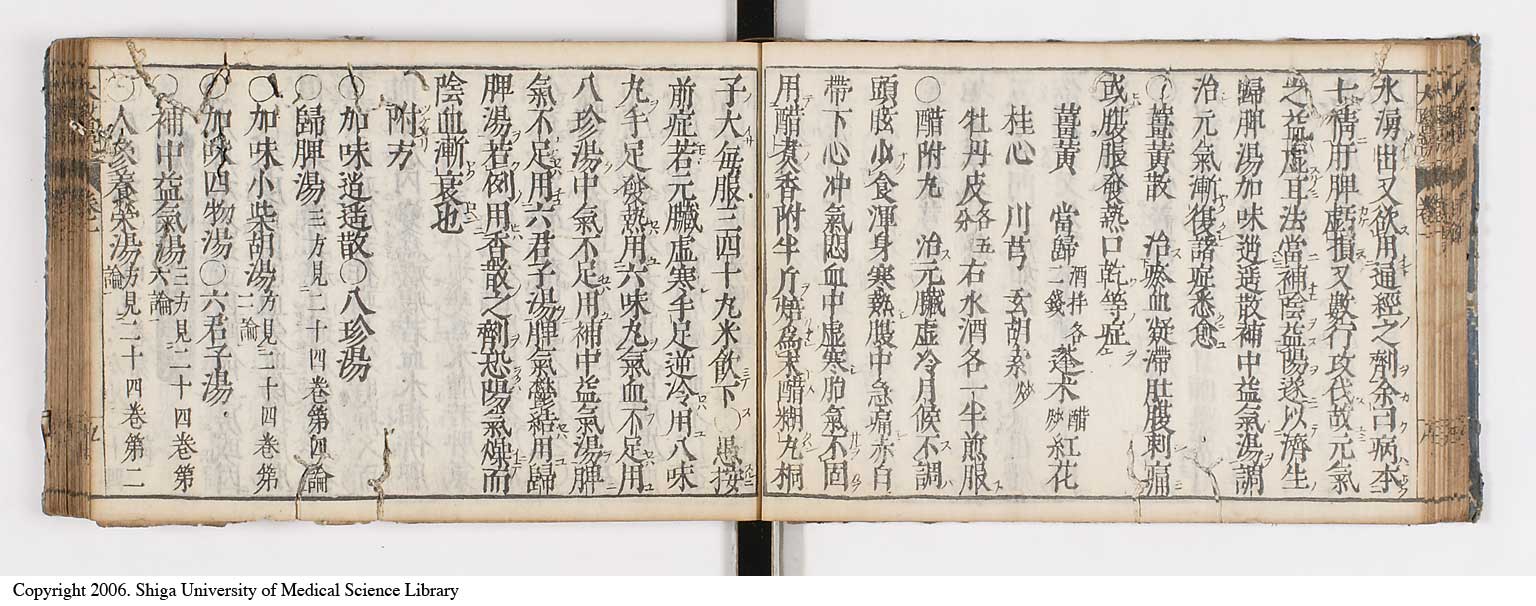 水湧出又欲用通經之劑余曰病本
七情肝脾虧損又數行攻伐故元氣
益虛耳法當補陰益陽遂以濟生
歸脾湯加味逍遙散補中益氣湯調
治元氣漸復諸症悉愈
○薑黃散 治瘀血凝滯肚腹刺痛
或腹脹發熱口乾等症
薑黃 當歸酒拌各二錢 蓬朮醋炒 紅花
桂心 川芎 玄胡索炒
牡丹皮各五分 右水酒各一半煎服
○醋附丸 治元臟虛冷月候不調
頭眩少食渾身寒熱腹中急痛赤白
帶下心冲氣悶血中虛寒胎氣不固
用醋煮香附半斤焙爲末醋糊丸桐
子大每服三四十丸米飲下○愚按
前症若元臟虛寒手足逆冷用八味
丸手足發熱用六味丸氣血不足用
八珍湯中氣不足用補中益氣湯脾
氣不足用六君子湯脾氣鬱結用歸
脾湯若例用香散之劑恐陽氣燥而
陰血漸衰也
附方
○加味逍遙散○八珍湯
○歸脾湯三方見二十四卷第四論
○加味小柴胡湯方見二十四卷第二論
○加味四物湯○六君子湯
○補中益氣湯三方見二十四卷第六論
○人參養榮湯方見二十四卷第二論
Copyright 2006. Shiga University of Medical Science Library